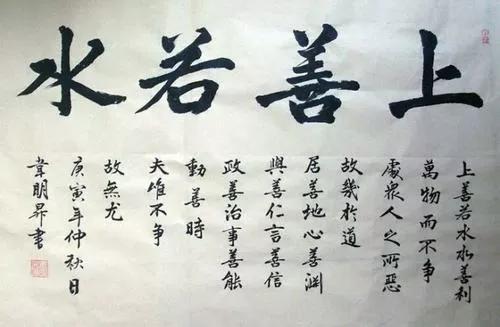 上善若水
上善若水水善利
萬物而不争
處衆人之所惡
故幾於道
居善地心善淵
與善仁言善信
政善治事善能
動善時
夫唯不争
故無尤
庚寅年仲秋日
韋明昇書